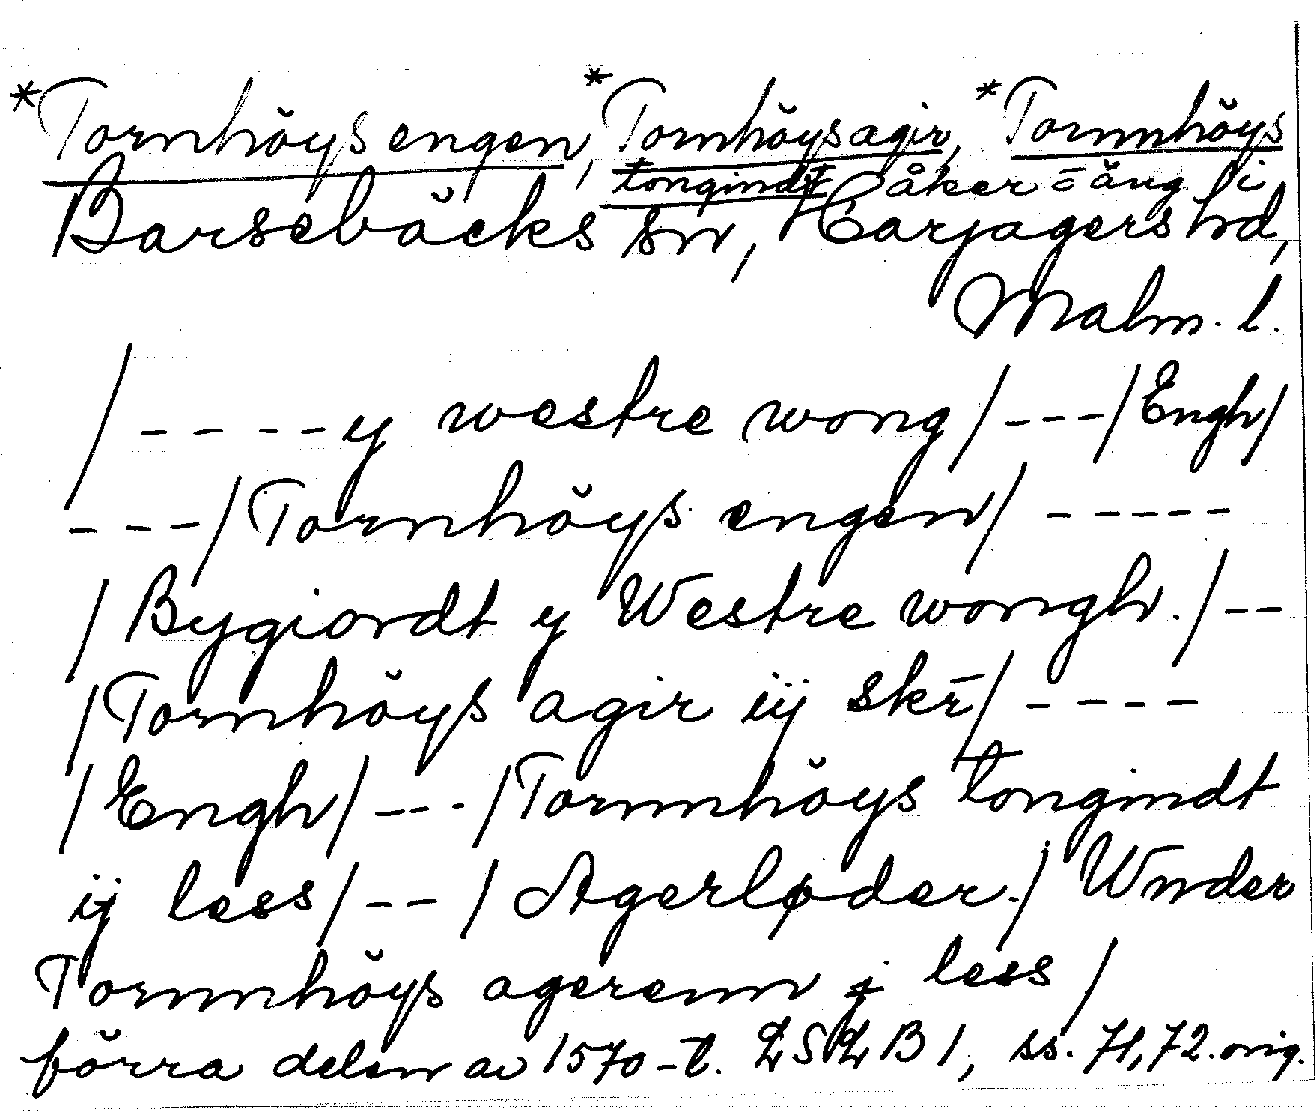 *Tornhöys engen, *Tornhöys agir, *Tornnhöys
tongindt åker o äng i
Barsebäcks sn, Harjagers hd,
Malm. l.
/ - - - - y westre wong / - - - / Engh /
- - - / Tornhöys engen / - - - - -
/ Bygiordt y Westre wongh. / - -
/ Tornhöys agir ij skr̄ / - - - -
/ Engh / - - - / Tornnhöys tongindt
ij less / - - / Agerløder. / Wnder
Tornnhöys agerenn j less /
förra delen av 1570-t. LSLB 1, ss. 71, 72. orig.